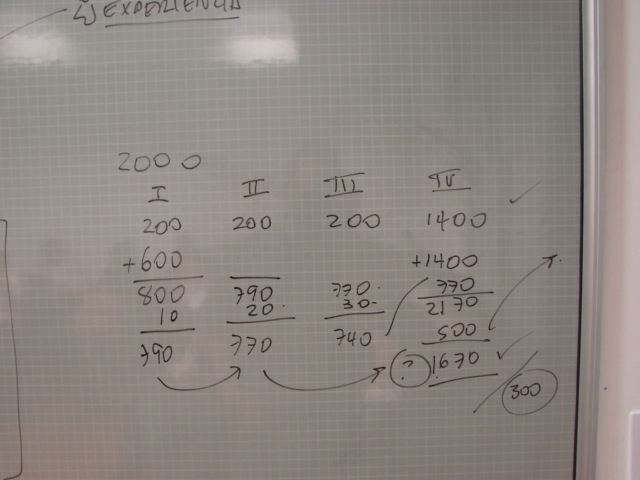 EXPERIENCIA
2000
I II III IV
200 200 200 1400
+600 +1400
800 790 770 770
10 20 30 2170
500
790 770 740
? 1670
300